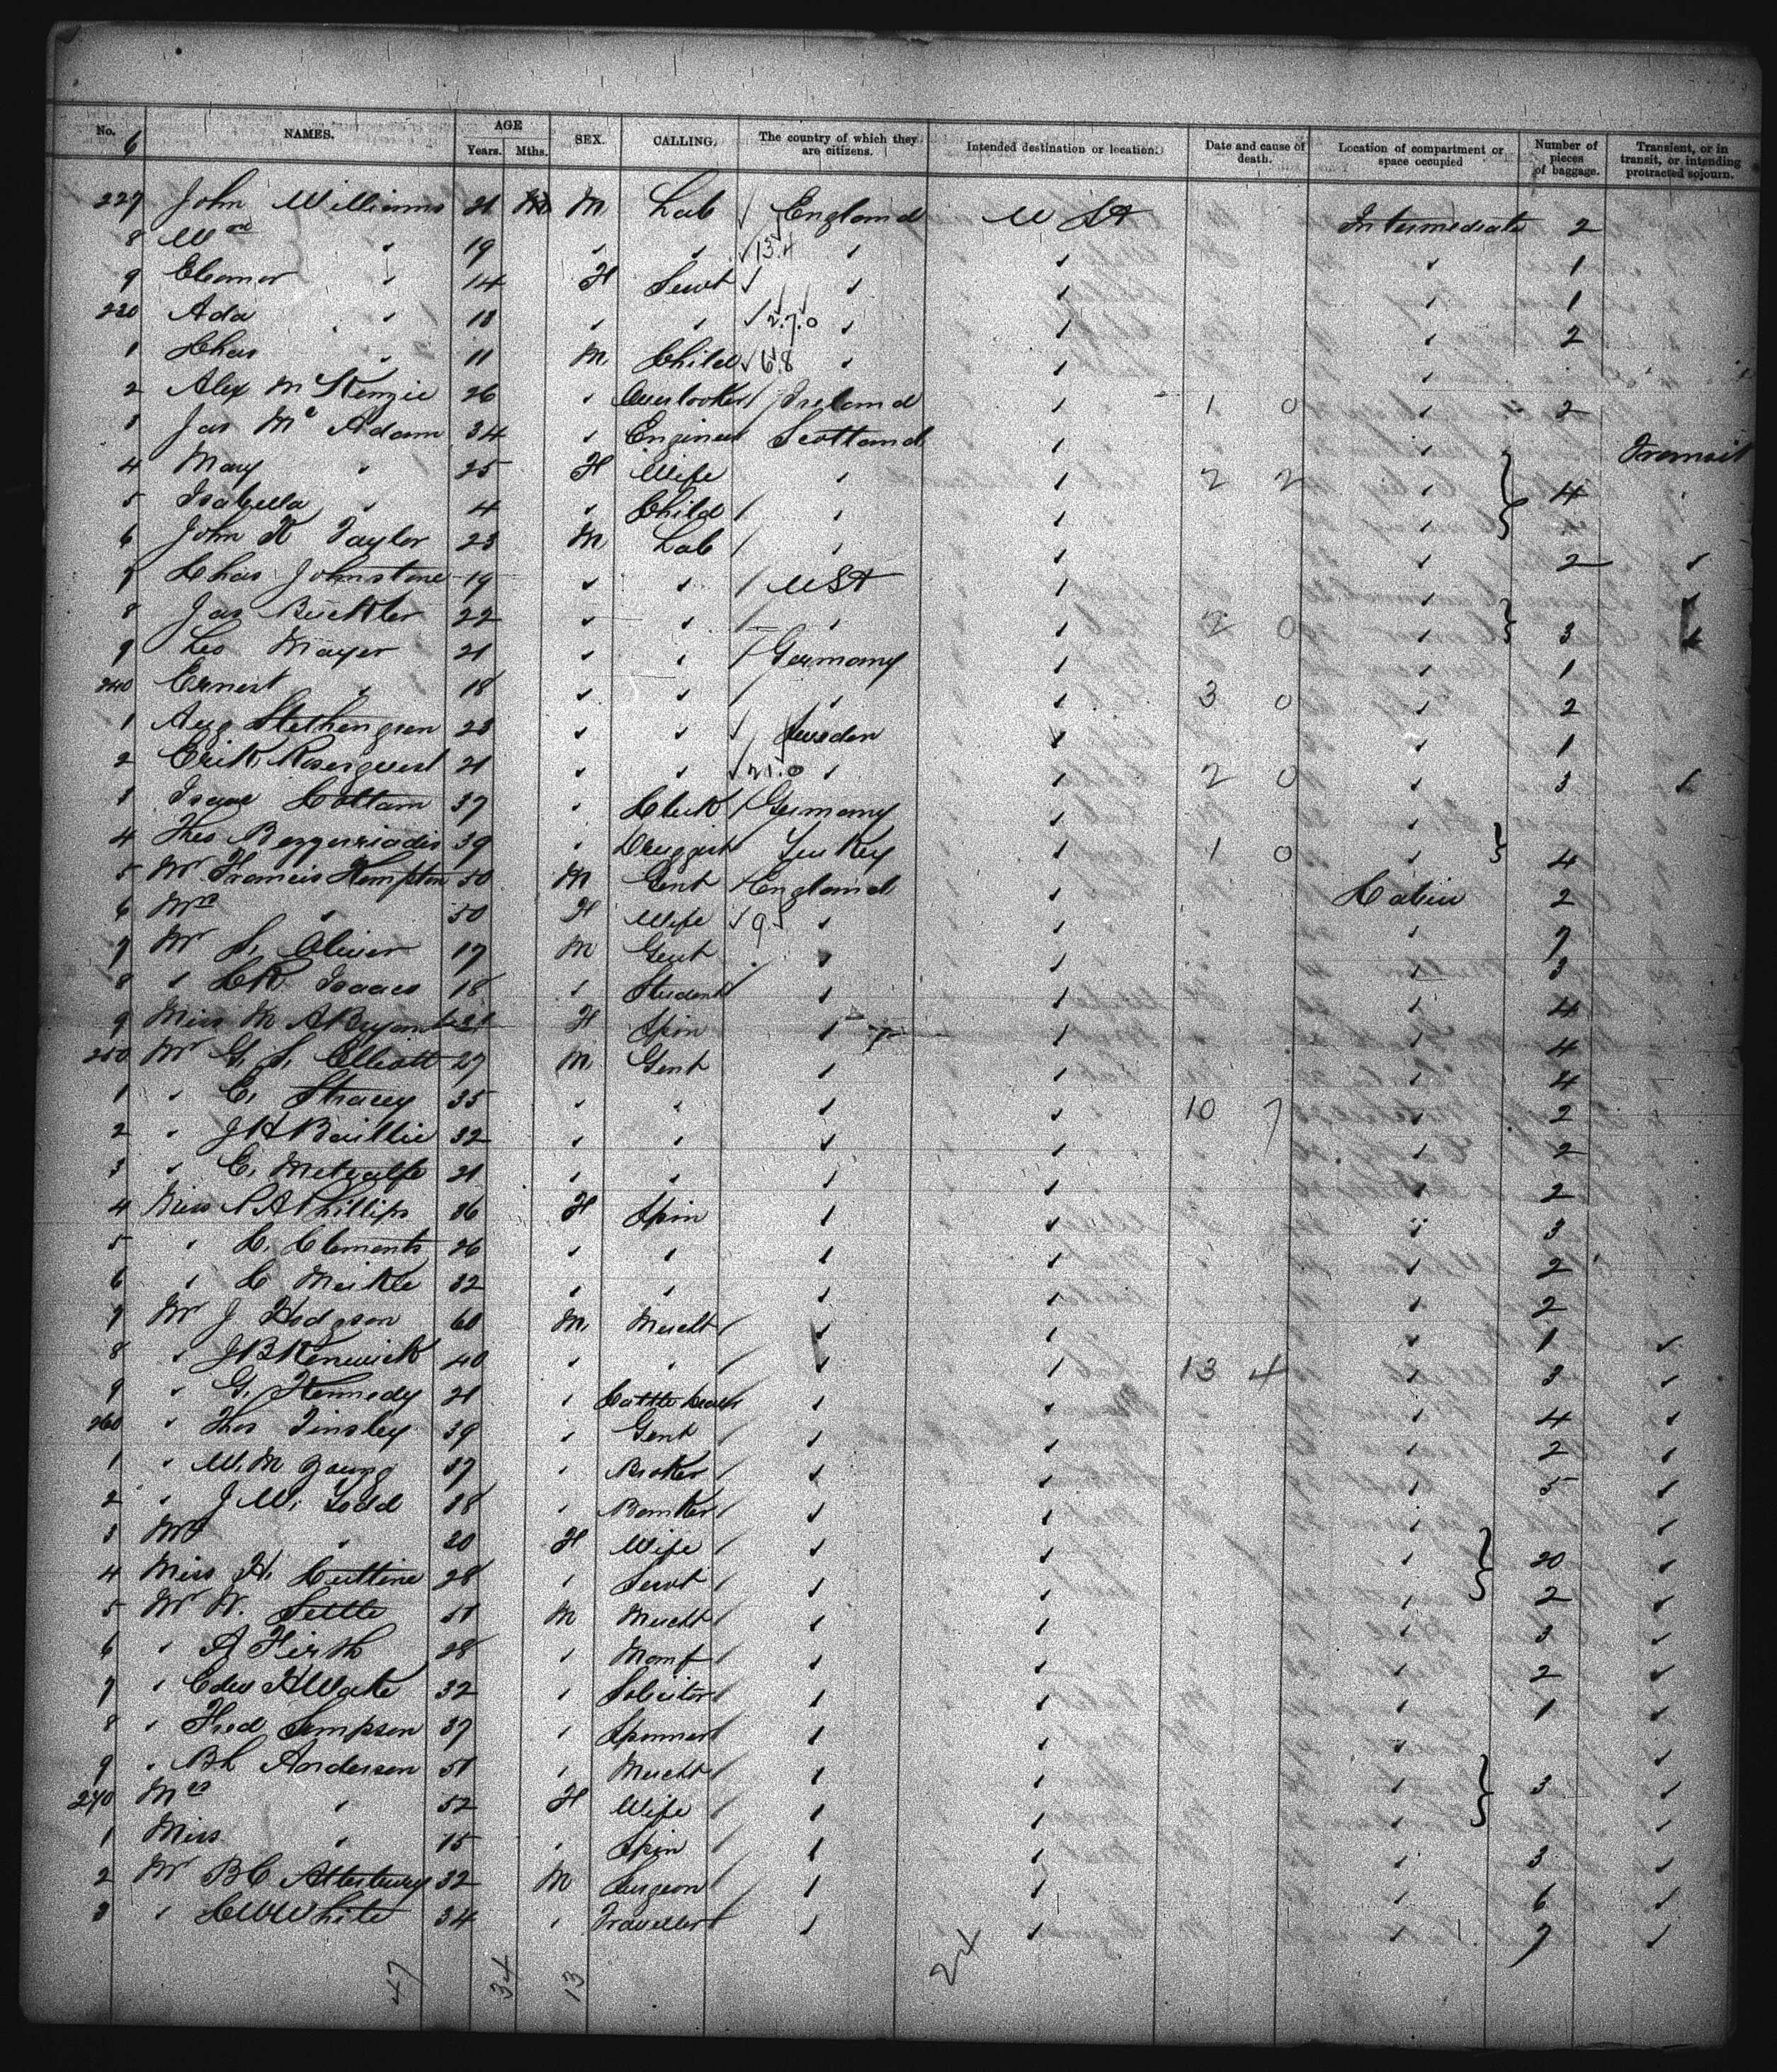 No. NAMES. AGE Years. Mths. SEX. CALLING. The country of which they are citizens. Intended destination or location. Date and cause of death. Location of compartment or space occupied Number of pieces of baggage. Transient, or in transit, or intending protracted sojourn.
6
227 John Williams 21 M Lab England U St Intermediate 2
8 Wm " 19 " " 13.4 " " " 1
9 Eleanor " 14 F Servt " " " 1
230 Ada " 18 " " 2.7.0 " " " 2
1 Chas " 11 M Child 6.8 " " "
2 Alex McKenzie 26 " Overlooker Ireland " 1 0 " 2
3 Jas Mc Adam 34 " Engineer Scotland " " Transit
4 Mary " 25 F Wife " " 2 2 " 4
5 Isabella " 4 " Child " " "
6 John K Taylor 23 M Lab " " " 2 "
7 Chas Johnstone 19 " " USA " " "
8 Jas Buckler 22 " " " " 2 0 " 3 "
9 Leo Mayer 21 " " Germany " 1
240 Ernest " 18 " " " " 3 0 " 2
1 Aug Stethengson 23 " " Sweden " " 1
2 Erik Rosenquest 21 " " 21.0 " " 2 0 " 3 "
3 Isaac Cottam 37 " Clerk Germany " "
4 Theo 39 " Druggist Turkey " 1 0 " 4
5 Mr Francis Hempton 50 M Gent England " Cabin 2
6 Mrs " 50 F Wife 9 " " " 7
7 Mr S. Oliver 17 M Gent " " " 3
8 " C R Isaacs 18 " Student " " " 4
9 Miss M A Bryant 21 F Spin " " " 4
250 Mr G. S. Elliott 27 M Gent " " " 4
1 " C. Stracey 35 " " " " 10 7 " 2
2 " J H Baillie 32 " " " " " 2
3 " C. Metcalfe 21 " " " " " 2
4 Miss S A Phillips 36 F Spin " " " 3
5 " C. Clements 26 " " " " " 2
6 " C Meikle 32 " " " " " 2
7 Mr J Hodgson 60 M Mercht " " " 1 "
8 " J B Kenwick 40 " " " " 13 4 " 3 "
9 " G. Kennedy 21 " Cattle dealer " " " 4 "
260 " Thos Tinsley 39 " Gent " " " 2 "
1 " W. M Young 37 " Broker " " " 5 "
2 " J W. Todd 38 " Banker " " " "
3 Mrs " 20 F Wife " " " 20 "
4 Miss H. Cuttine 28 " Servt " " " 2 "
5 Mr W. Settle 51 M Mercht " " 3 "
6 " A Firth 28 " Manf " " " 2 "
7 " Edw H Wake 32 " Solicitor " " " 1 "
8 " Fred Simpson 37 " Spinner " " " "
9 " B L Anderson 51 " Mercht " " " 3 "
270 Mrs " 52 F Wife " " " "
1 Miss " 15 " Spin " " " 3 "
2 Mr B C Atterbury 32 M Surgeon " " " 6 "
3 " C W White 34 " Traveller " " " 7 "
47 34 13 24